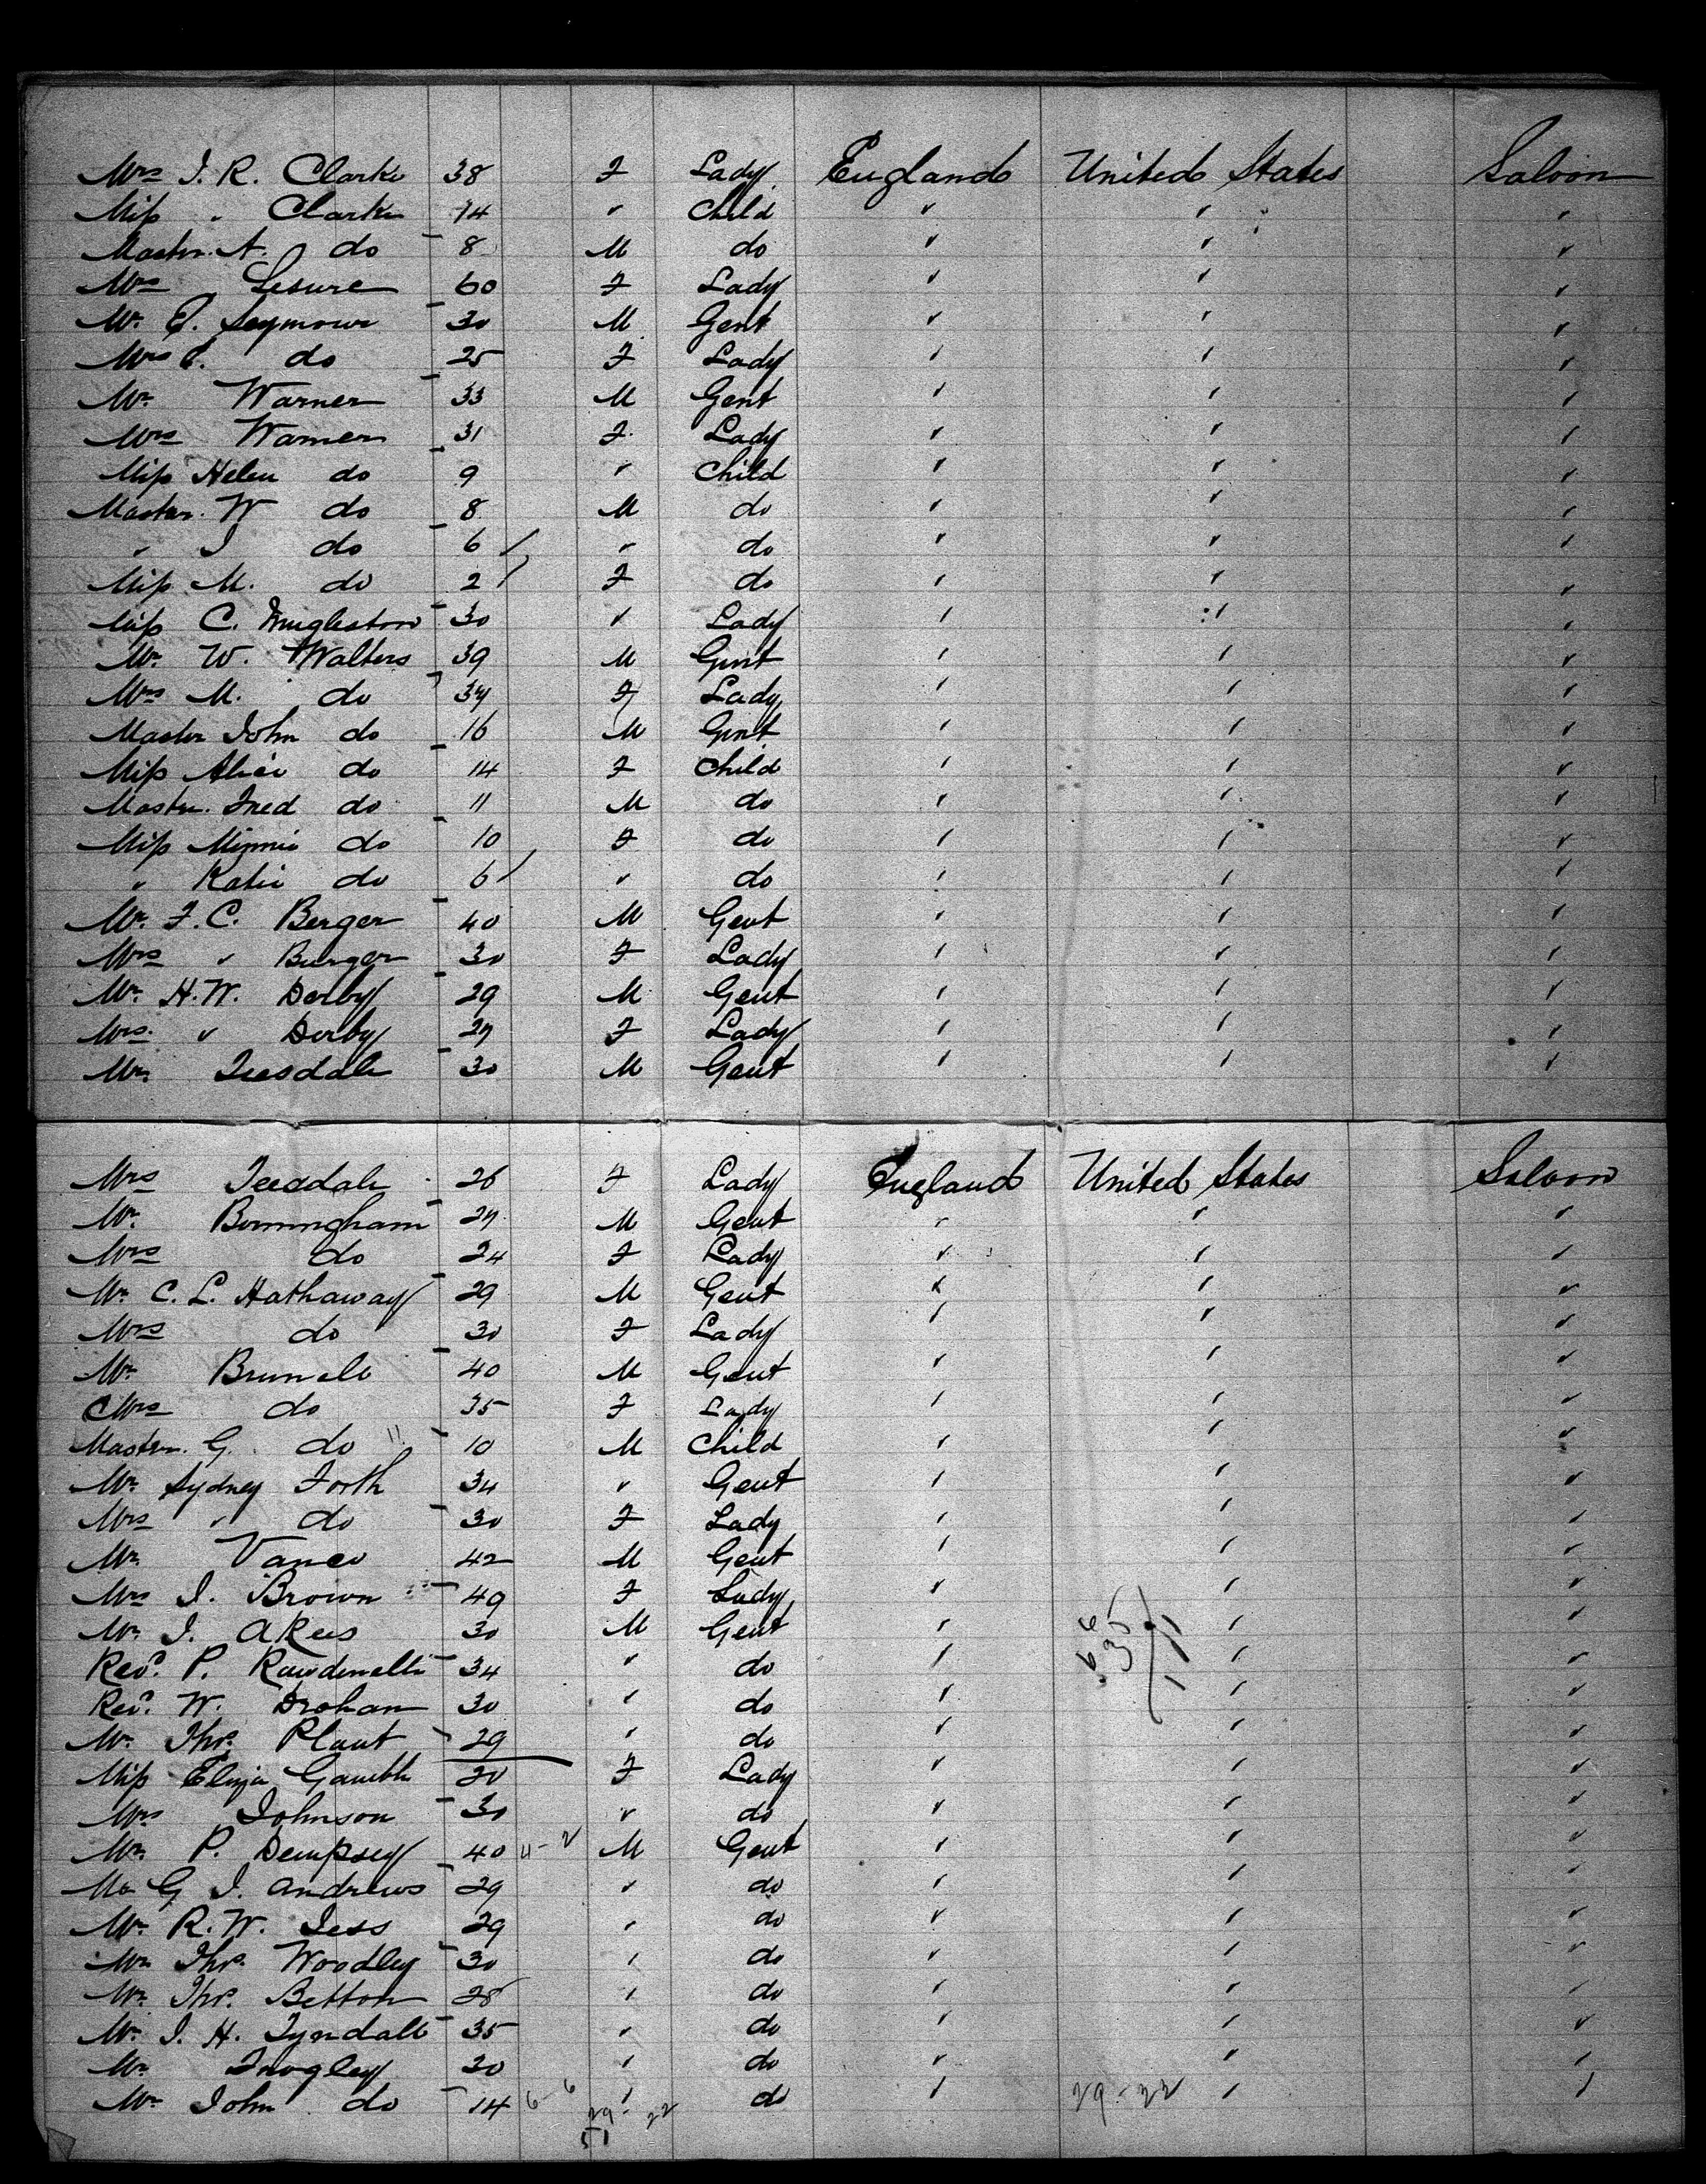 Mrs J. R. Clarke 38 F Lady England United States Saloon
Miss " Clarke 14 " Child " " "
Master A. do 8 M do " " "
Mrs Lesure 60 F Lady " " "
Mr. E. Seymour 30 M Gent " " "
Mrs E. do 25 F Lady " " "
Mr. Warner 33 M Gent " " "
Mrs Warner 31 F. Lady " " "
Miss Helen do 9 " Child " " "
Master. W do 8 M do " " "
" J do 6 " do " " "
Miss M. do 2 F do " " "
Miss C. 30 " Lady " " "
Mr. W. Walters 39 M Gent " " "
Mrs M. do 34 F Lady " " "
Master John do 16 M Gent " " "
Miss Alice do 14 F Child " " "
Master. Fred do 11 M do " " "
Miss Minnie do 10 F do " " "
" Katie do 6 " do " " "
Mr. F. C. Berger 40 M Gent " " "
Mrs " Burger 30 F Lady " " "
Mr. H. W. Derby 29 M Gent " " "
Mrs. " Derby 27 F Lady " " "
Mr. Teesdale 30 M Gent " " "
Mrs Teesdale 26 F Lady England United States Saloon
Mr. Birmingham 27 M Gent " " "
Mrs do 24 F Lady " " "
Mr. C. L. Hathaway 29 M Gent " " "
Mrs do 30 F Lady " " "
Mr. 40 M Gent " " "
Mrs do 35 F Lady " " "
Master. G. do 10 M Child " " "
Mr. Sydney Forth 34 " Gent " " "
Mrs " do 30 F Lady " " "
Mr. Vance 42 M Gent " " "
Mrs J. Brown 49 F Lady " " "
Mr. J. 30 M Gent " " "
Revd. P. 34 " do " " "
Revd. W. Drohan 30 " do " " "
Mr. Thos. Plant 29 " do " " "
Miss Eliza Gamble 20 F Lady " " "
Mrs Johnson 30 " do " " "
Mr. P. Dempsey 40 M Gent " " "
Mr G J. Andrews 29 " do " " "
Mr. R. W. 29 " do " " "
Mr. Thos. Woodley 30 " do " " "
Mr. Thos. Betton 28 " do " " "
Mr. J. H. Tyndall 35 " do " " "
Mr. 20 " do " " "
Mr. John do 14 6-6 " do " 29-22 " "
29-22
51